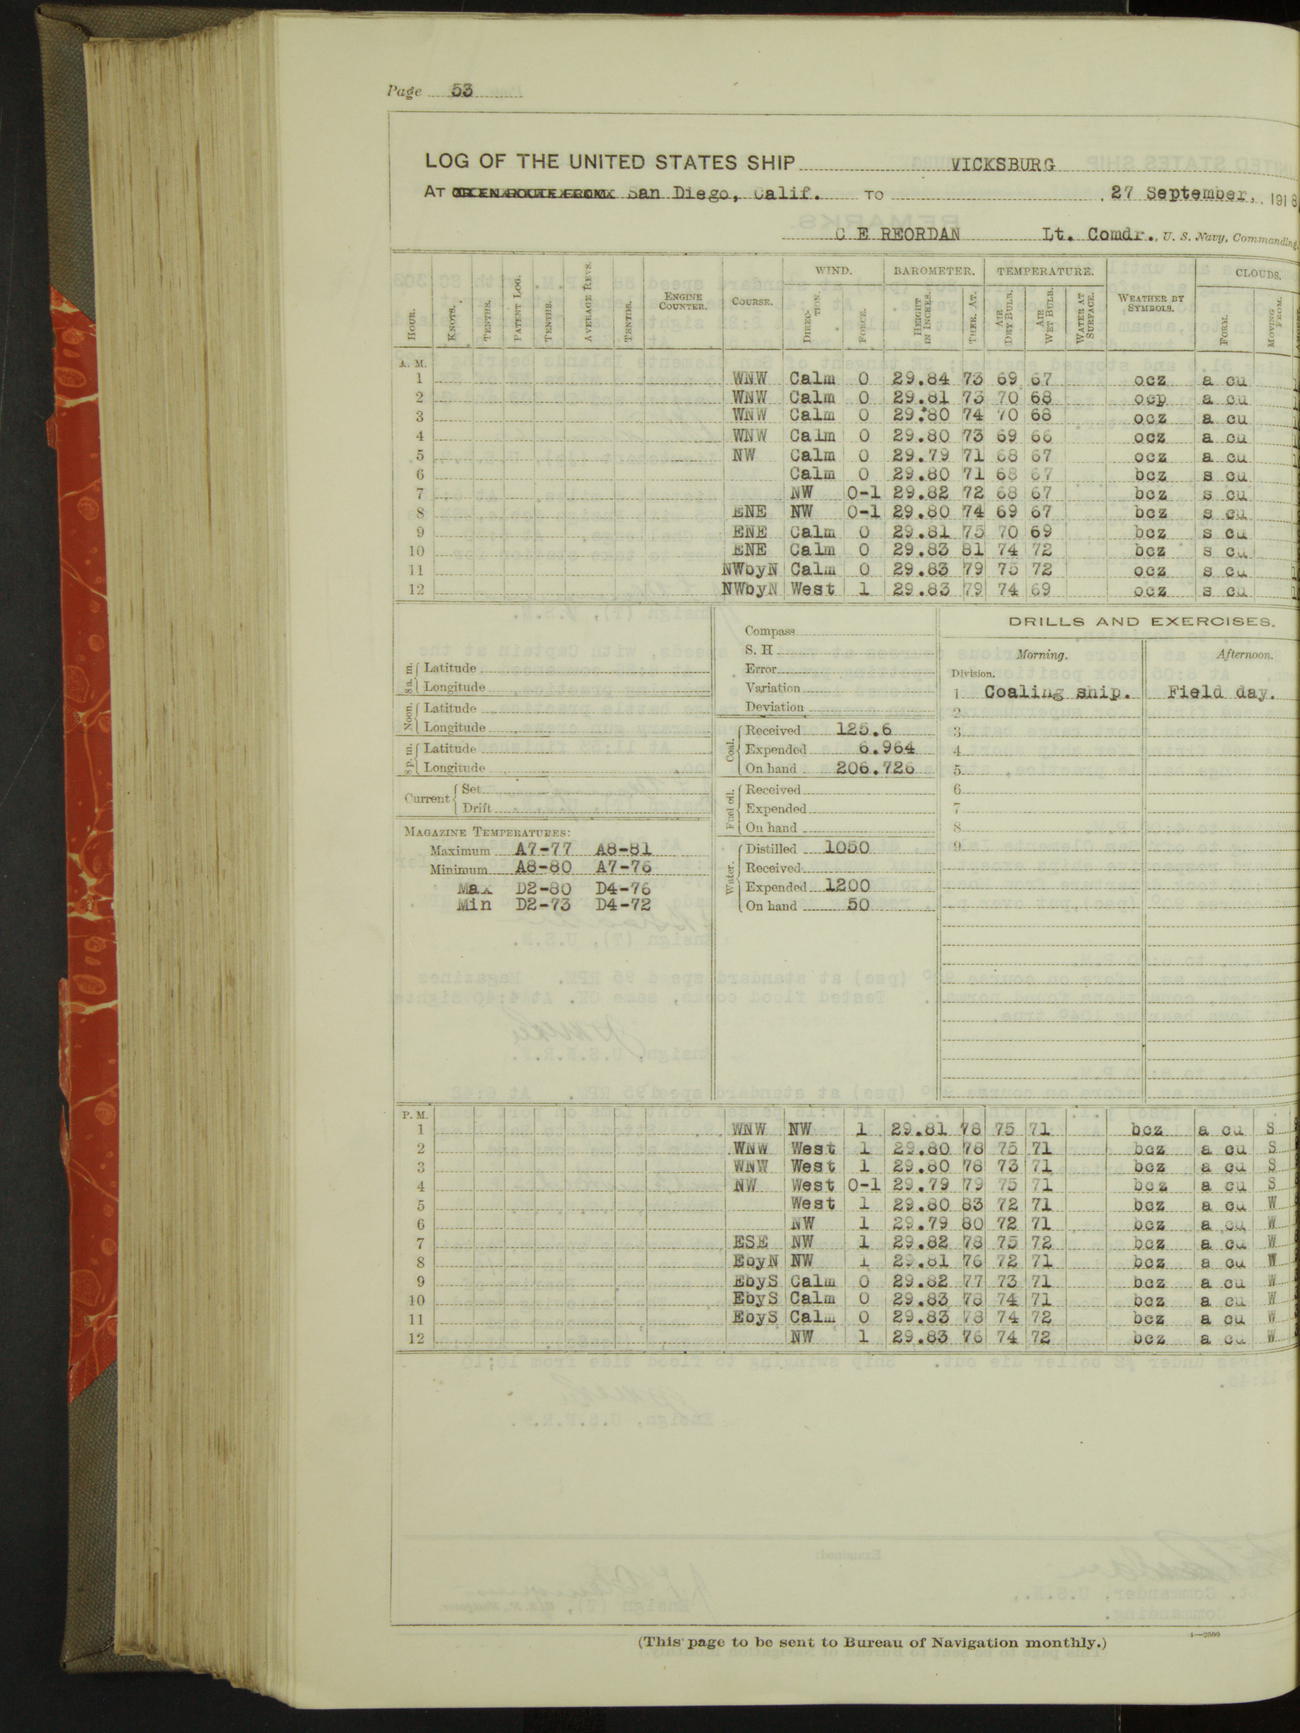 Page 53
LOG OF THE UNITED STATES SHIP VICKSBURG
AT San Diego, Calif. TO 27 September, 1918
C E REORDAN Lt. Comdr., U. S. Navy, Commanding
WIND. BAROMETER. TEMPERATURE. CLOUDS.
HOUR. KNOTS. TENTHS. PATENT LOG. TENTHS. AVERAGE REVS. TENTHS. ENGINE COUNTER. COURSE. DIRECTION. FORCE. HEIGHT IN INCHES. THER. AT. AIR DRY BULB. AIR WET BULB. WATER AT SURFACE. WEATHER BY SYMBOLS. FORM. MOVING FROM.
A. M.
1 WNW Calm 0 29.84 73 69 67 ocz a cu
2 WNW Calm 0 29.81 73 70 68 ocp a cu
3 WNW Calm 0 29.80 74 70 68 ocz a cu
4 WNW Calm 0 29.80 73 69 66 ocz a cu
5 NW Calm 0 29.79 71 68 67 ocz a cu
6 Calm 0 29.80 71 68 67 bcz s cu
7 NW 0-1 29.82 72 68 67 bcz s cu
8 ENE NW 0-1 29.80 74 69 67 bcz s cu
9 ENE Calm 0 29.81 75 70 69 bcz s cu
10 ENE Calm 0 29.83 81 74 72 bcz s cu
11 NWbyN Calm 0 29.83 79 75 72 ocz s cu
12 NWbyN West 1 29.83 79 74 69 ocz s cu
8 a. m. Latitude
Longitude
Noon. Latitude
Longitude
8 p. m. Latitude
Longitude
Current Set
Drift
MAGAZINE TEMPERATURES:
Maximum A7-77 A8-81
Minimum A8-80 A7-76
Max D2-80 D4-76
Min D2-73 D4-72
Compass
S. H
Error
Variation
Deviation
Coal. Received 125.6
Expended 6.964
On hand 206.726
Fuel oil. Received
Expended
On hand
Water. Distilled 1050
Received
Expended 1200
On hand 50
DRILLS AND EXERCISES.
Morning. Afternoon.
Division.
1 Coaling ship. Field day.
2
3
4
5
6
7
8
9
P. M.
1 WNW NW 1 29.81 78 75 71 bcz a cu S
2 WNW West 1 29.80 78 75 71 bcz a cu S
3 WNW West 1 29.80 78 73 71 bcz a cu S
4 NW West 0-1 29.79 79 75 71 bcz a cu S
5 West 1 29.80 83 72 71 bcz a cu W
6 NW 1 29.79 80 72 71 bcz a cu W
7 ESE NW 1 29.82 78 75 72 bcz a cu W
8 EbyN NW 1 29.81 76 72 71 bcz a cu W
9 EbyS Calm 0 29.82 77 73 71 bcz a cu W
10 EbyS Calm 0 29.83 78 74 71 bcz a cu W
11 EbyS Calm 0 29.83 78 74 72 bcz a cu W
12 NW 1 29.83 76 74 72 bcz a cu W
(This page to be sent to Bureau of Navigation monthly.)